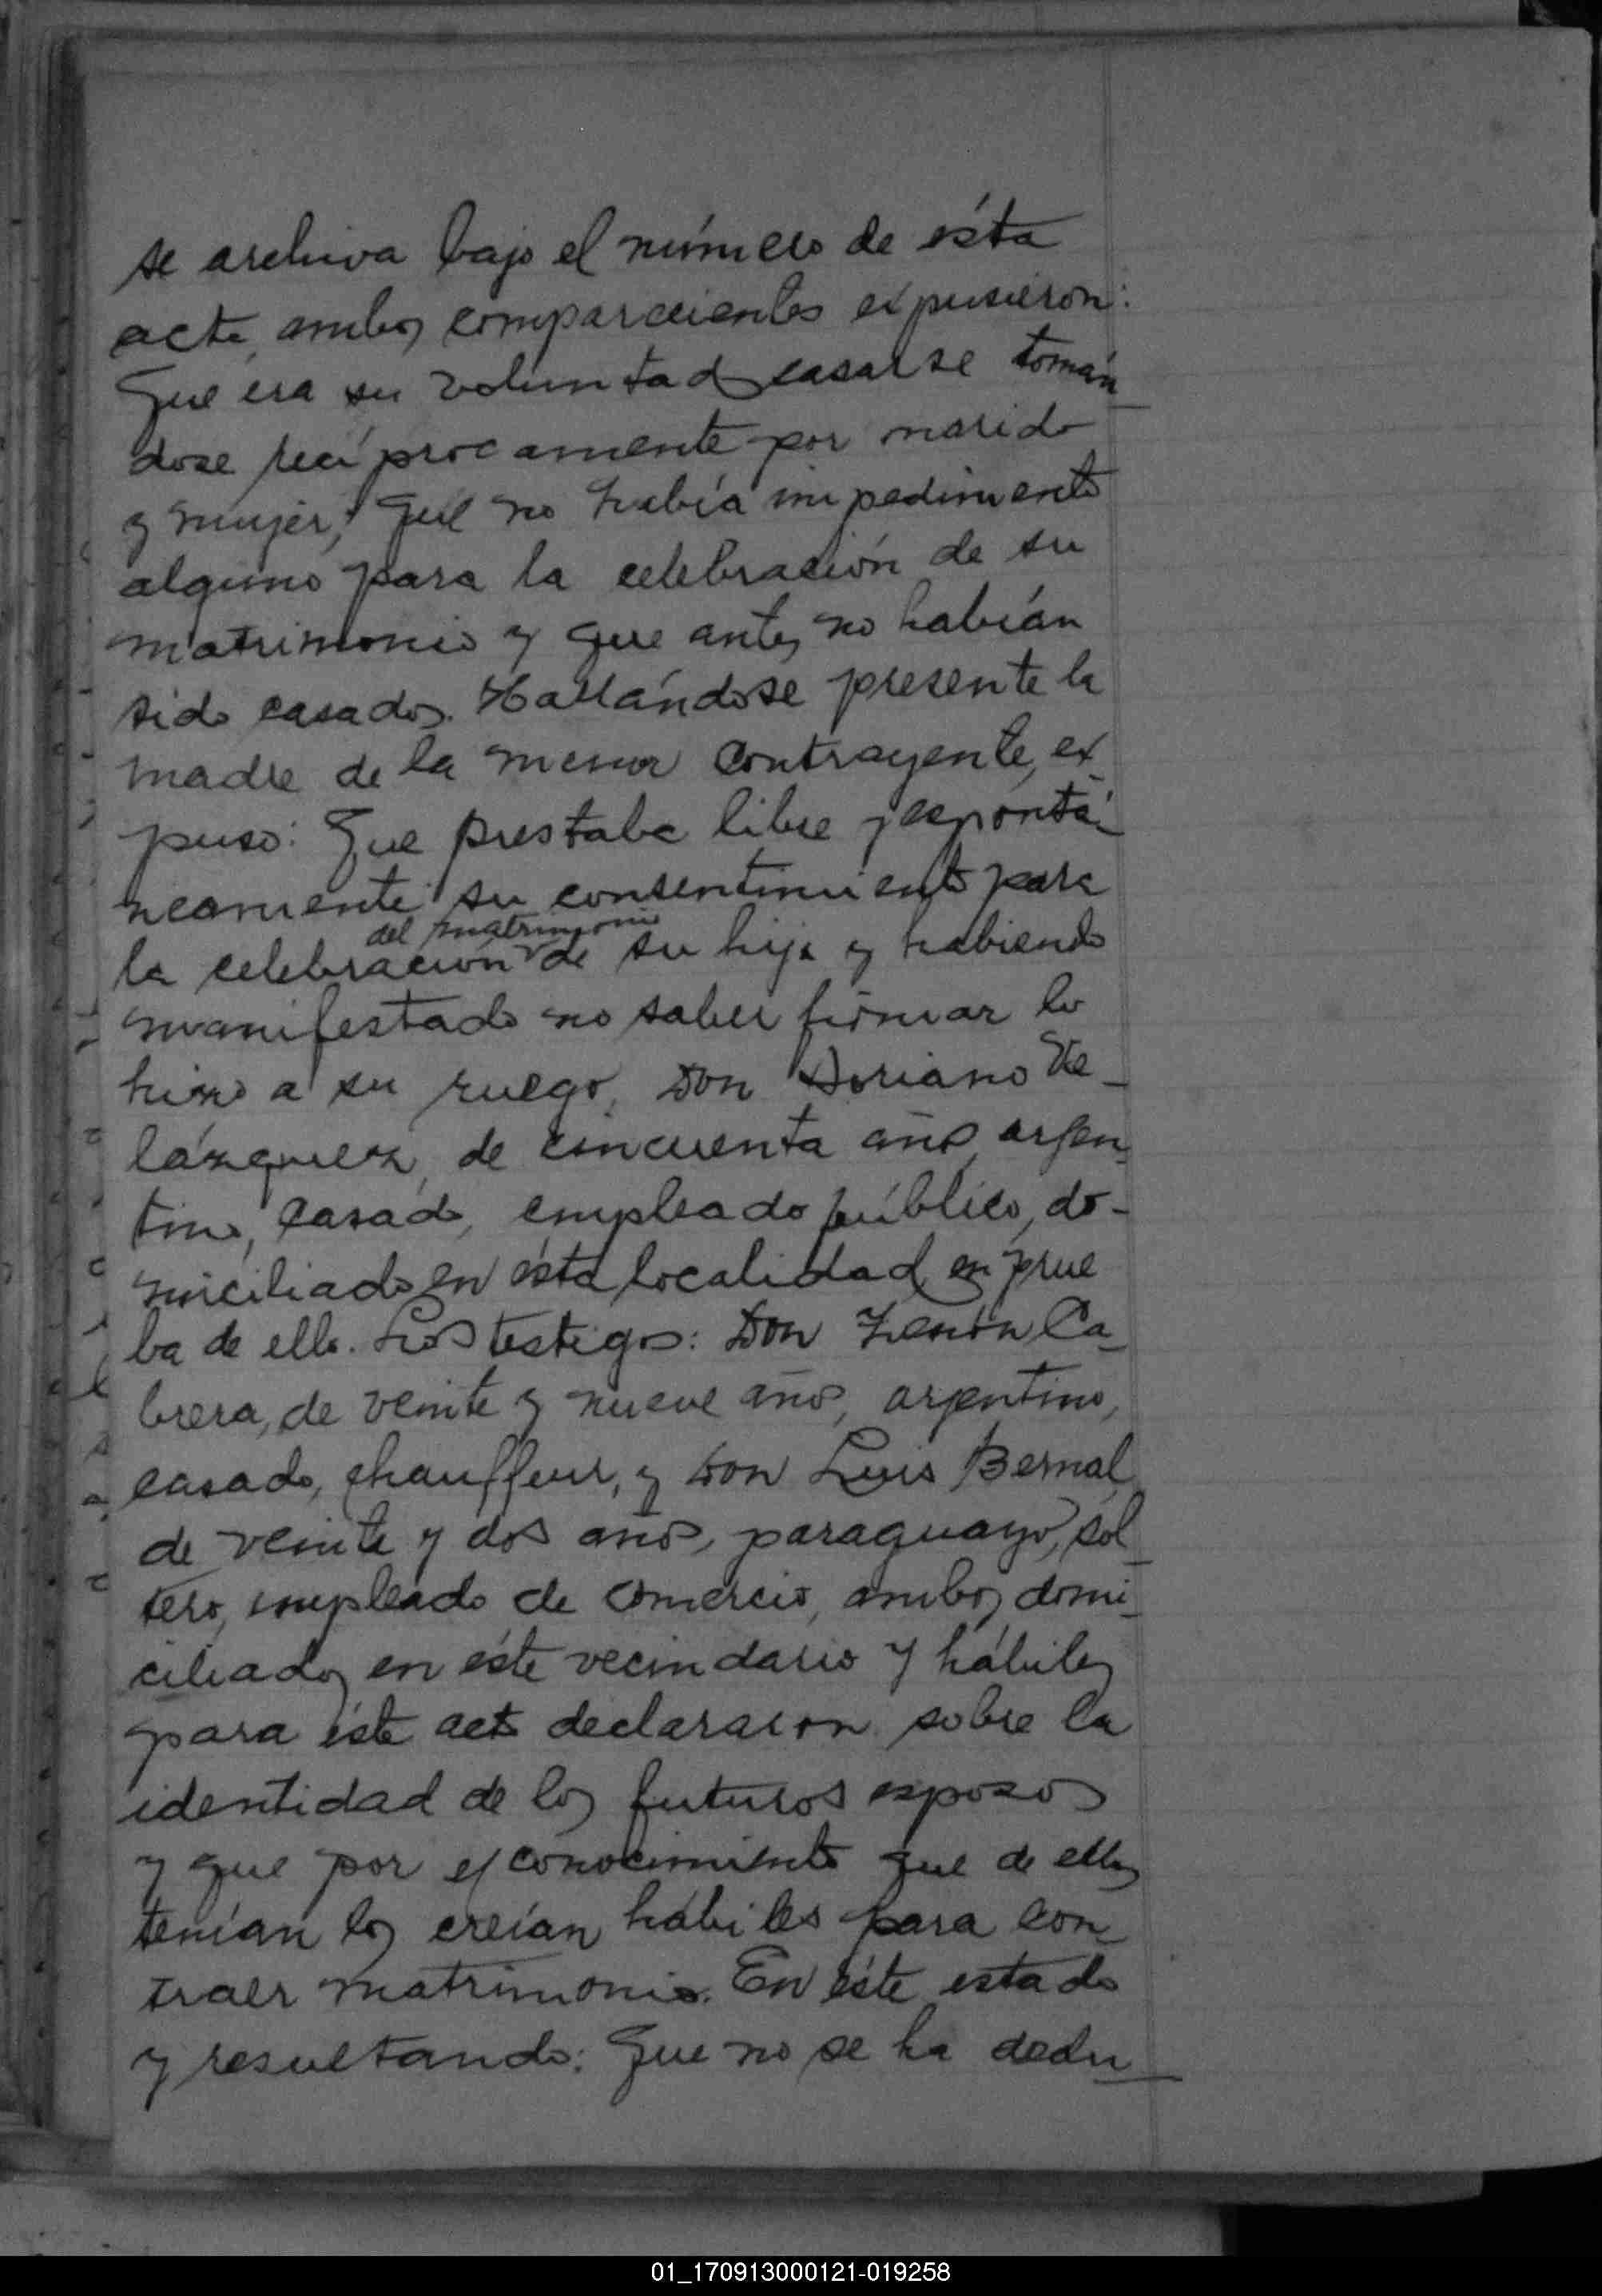 se archiva bajo el número de ésta
acta, ambos comparecientes expusieron:
Que era su voluntad casarse tomán
dose recíprocamente por marido
y mujer; que no había impedimento
alguno para la celebración de su
matrimonio y que antes no habían
sido casados. Hallándose presente la
madre de la menor contrayente, ex
puso: Que prestaba libre y espontá
neamente su consentimiento para
del matrimonio
la celebración de su hija y habiendo
manifestado no saber firmar lo
hizo a su ruego, Don Doriano Ve-
lázquez, de cincuenta años, argen
tino, casado, empleado público, do-
miciliado en ésta localidad en prue
ba de ello. Los testigos: Don Zenón Ca
brera, de veinte y nueve años, argentino,
casado, chauffeur, y Don Luis Bernal,
de veinte y dos años, paraguayo, sol
tero, empleado de comercio, ambos domi
ciliados en éste vecindario y hábiles
para éste acto declararon sobre la
identidad de los futuros esposos
y que por el conocimiento que de ellos
tenían los creían hábiles para con
traer matrimonio. En éste estado
y resultando: Que no se ha dedu
01_170913000121-019258